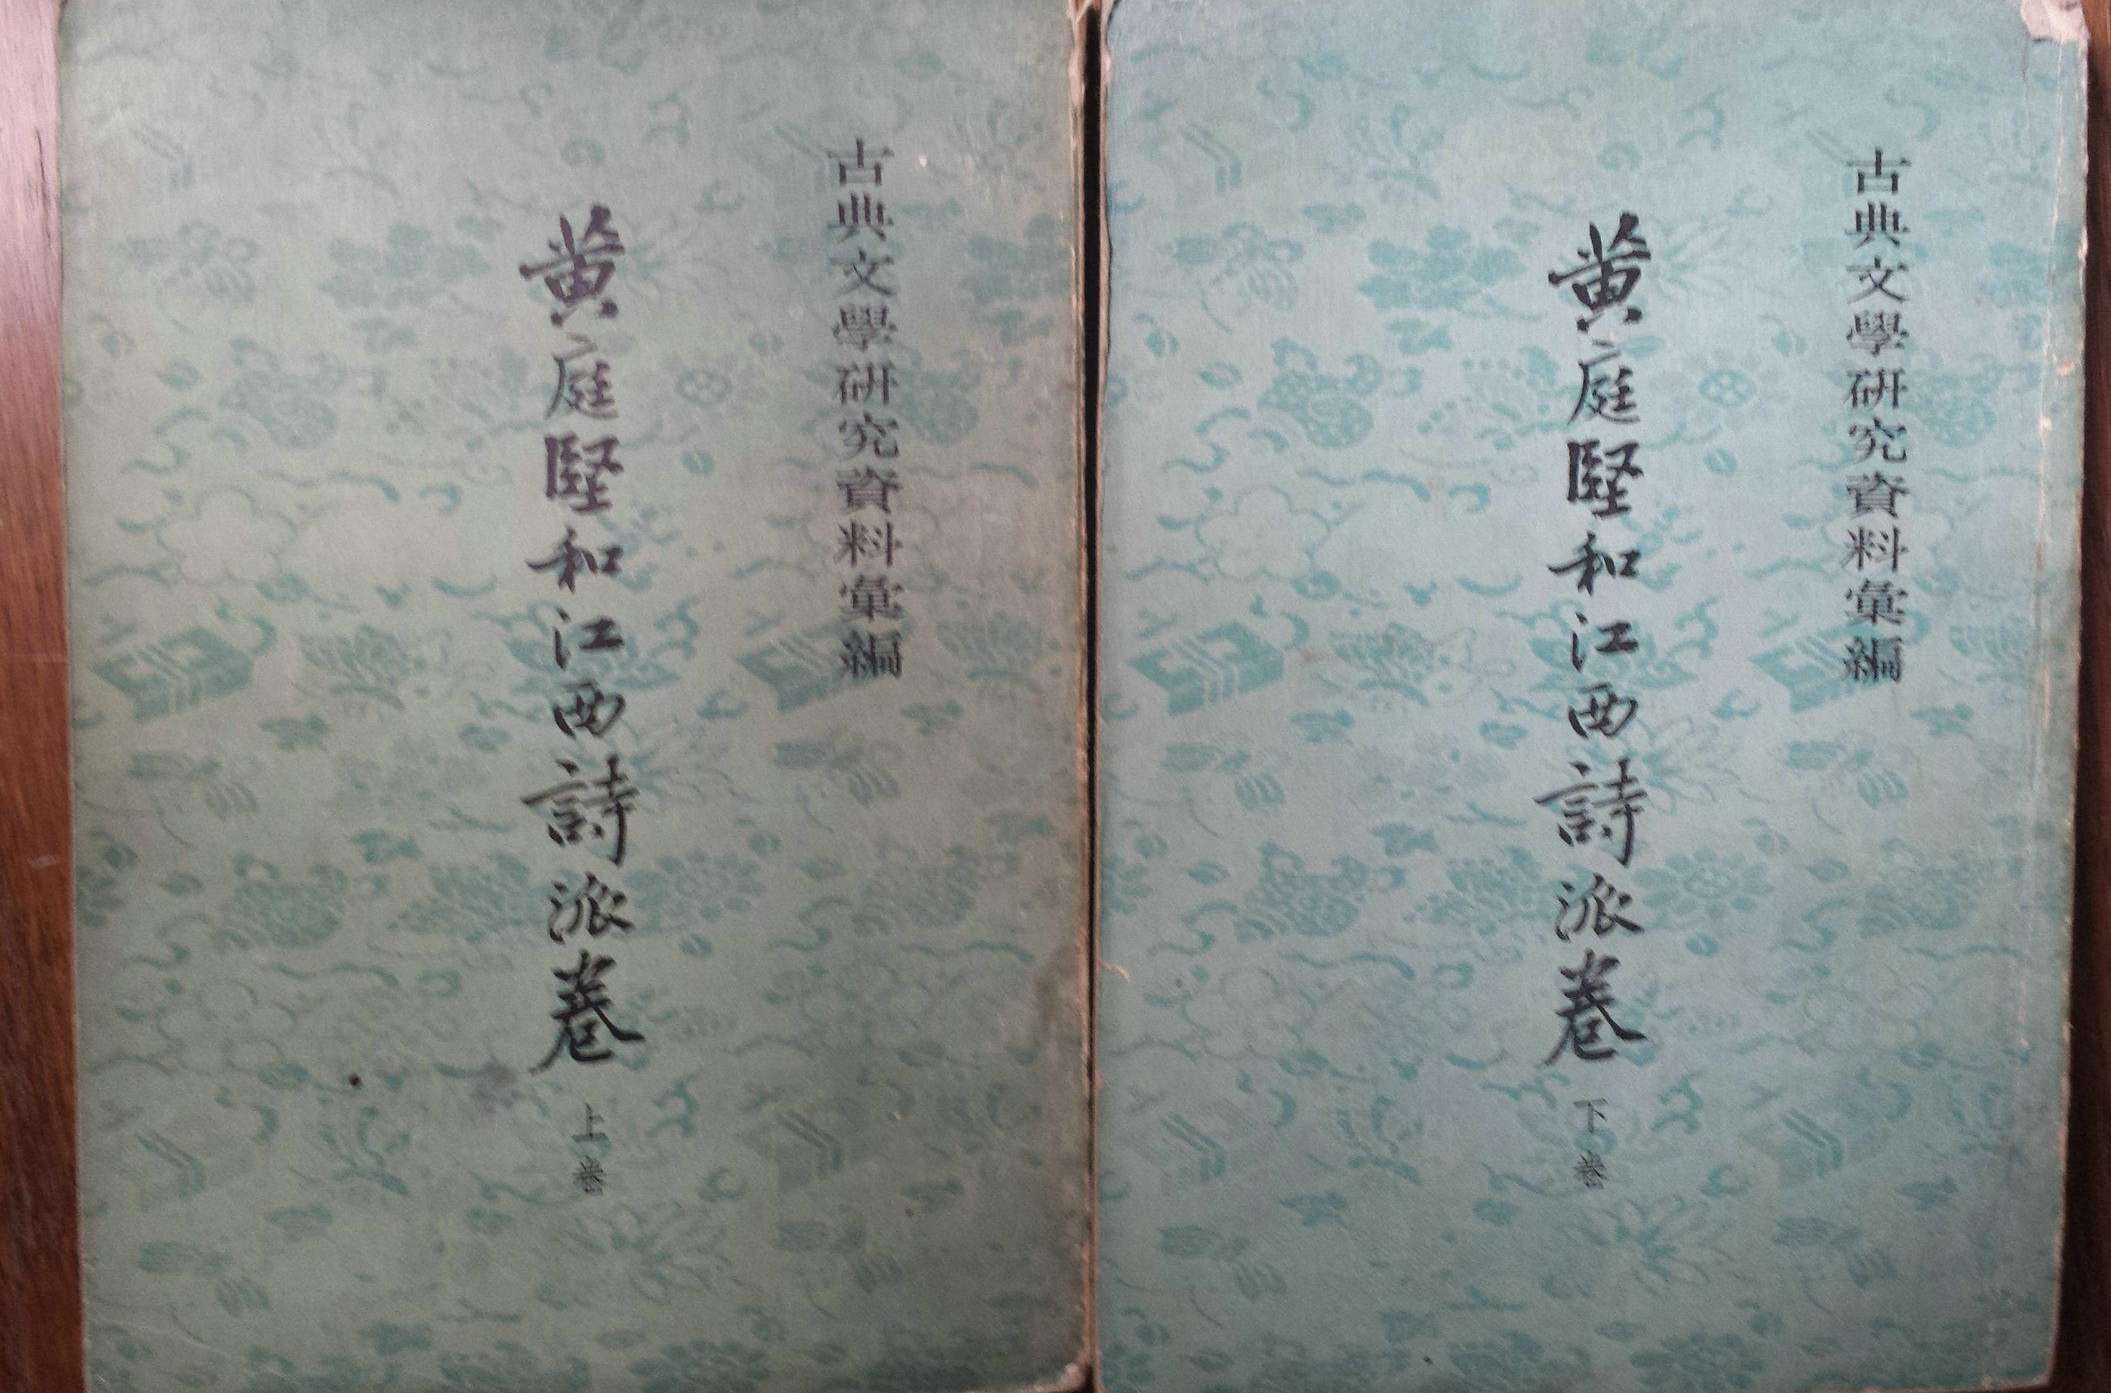 古典文學研究資料彙編
黄庭堅和江西詩派卷
上卷
古典文學研究資料彙編
黄庭堅和江西詩派卷
下卷